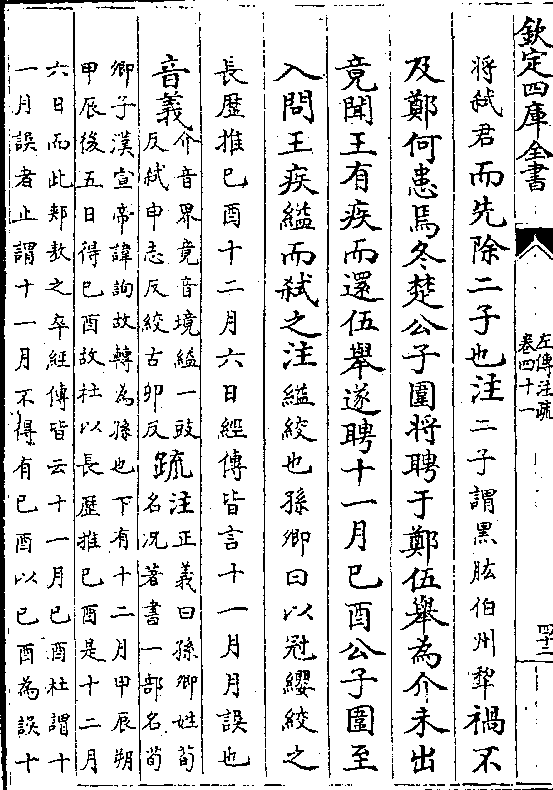 欽定四庫全書
左傳注疏
卷四十一
將弑君而先除二子也注二子謂黑肱伯州犂禍不
及鄭何患焉冬楚公子圍將聘于鄭伍舉為介未出
竟聞王有疾而還伍舉遂聘十一月己酉公子圍至
入問王疾縊而弑之注縊絞也孫卿曰以冠纓絞之
長歴推己酉十二月六日經傳皆言十一月月誤也
音義介音界竟音境縊一豉
反弑申志反絞古卯反疏注正義曰孫卿姓荀
名况著書一部名荀
卿子漢宣帝諱詢故轉為孫也下有十二月甲辰朔
甲辰後五日得己酉故杜以長歴推己酉是十二月
六日而此郟敖之卒經傳皆云十一月己酉杜謂十
一月誤者止謂十一月不得有己酉以己酉為誤十